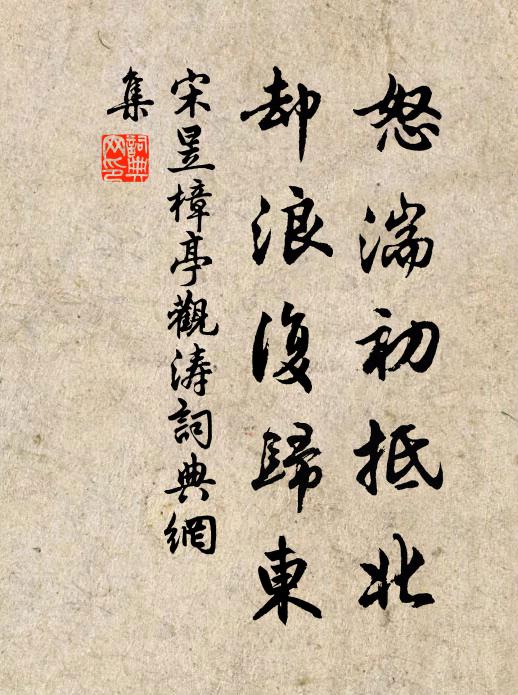 怒湍初抵北
却浪復歸東
宋昱樟亭觀涛詞典網
集
詞典網印